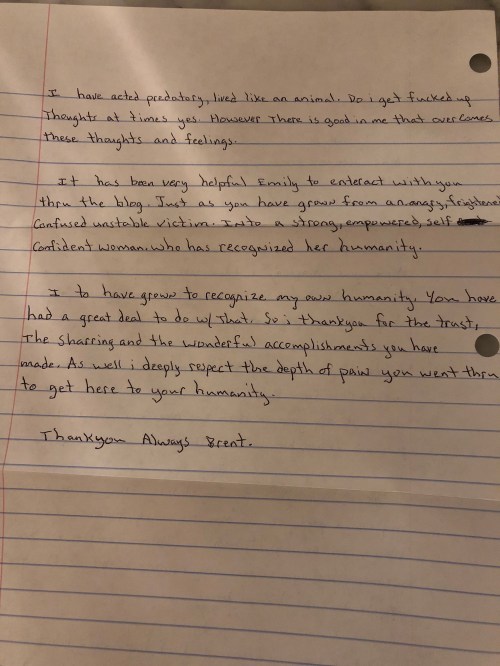 I have acted predatory, lived like an animal. Do i get fucked up
Thoughts at times yes. However There is good in me that over comes
these thoughts and feelings.
It has been very helpful Emily to enteract with you
thru the blog. Just as you have grown from an angry, frightened
Confused unstable victim. Into a strong, empowered, self
Confident woman. who has recognized her humanity.
I to have grown to recognize my own humanity. You have
had a great deal to do w/ That. So i thankyou for the trust,
The sharring and the wonderful accomplishments you have
made. As well i deeply respect the depth of pain you went thru
to get here to your humanity.
Thankyou Always Brent.